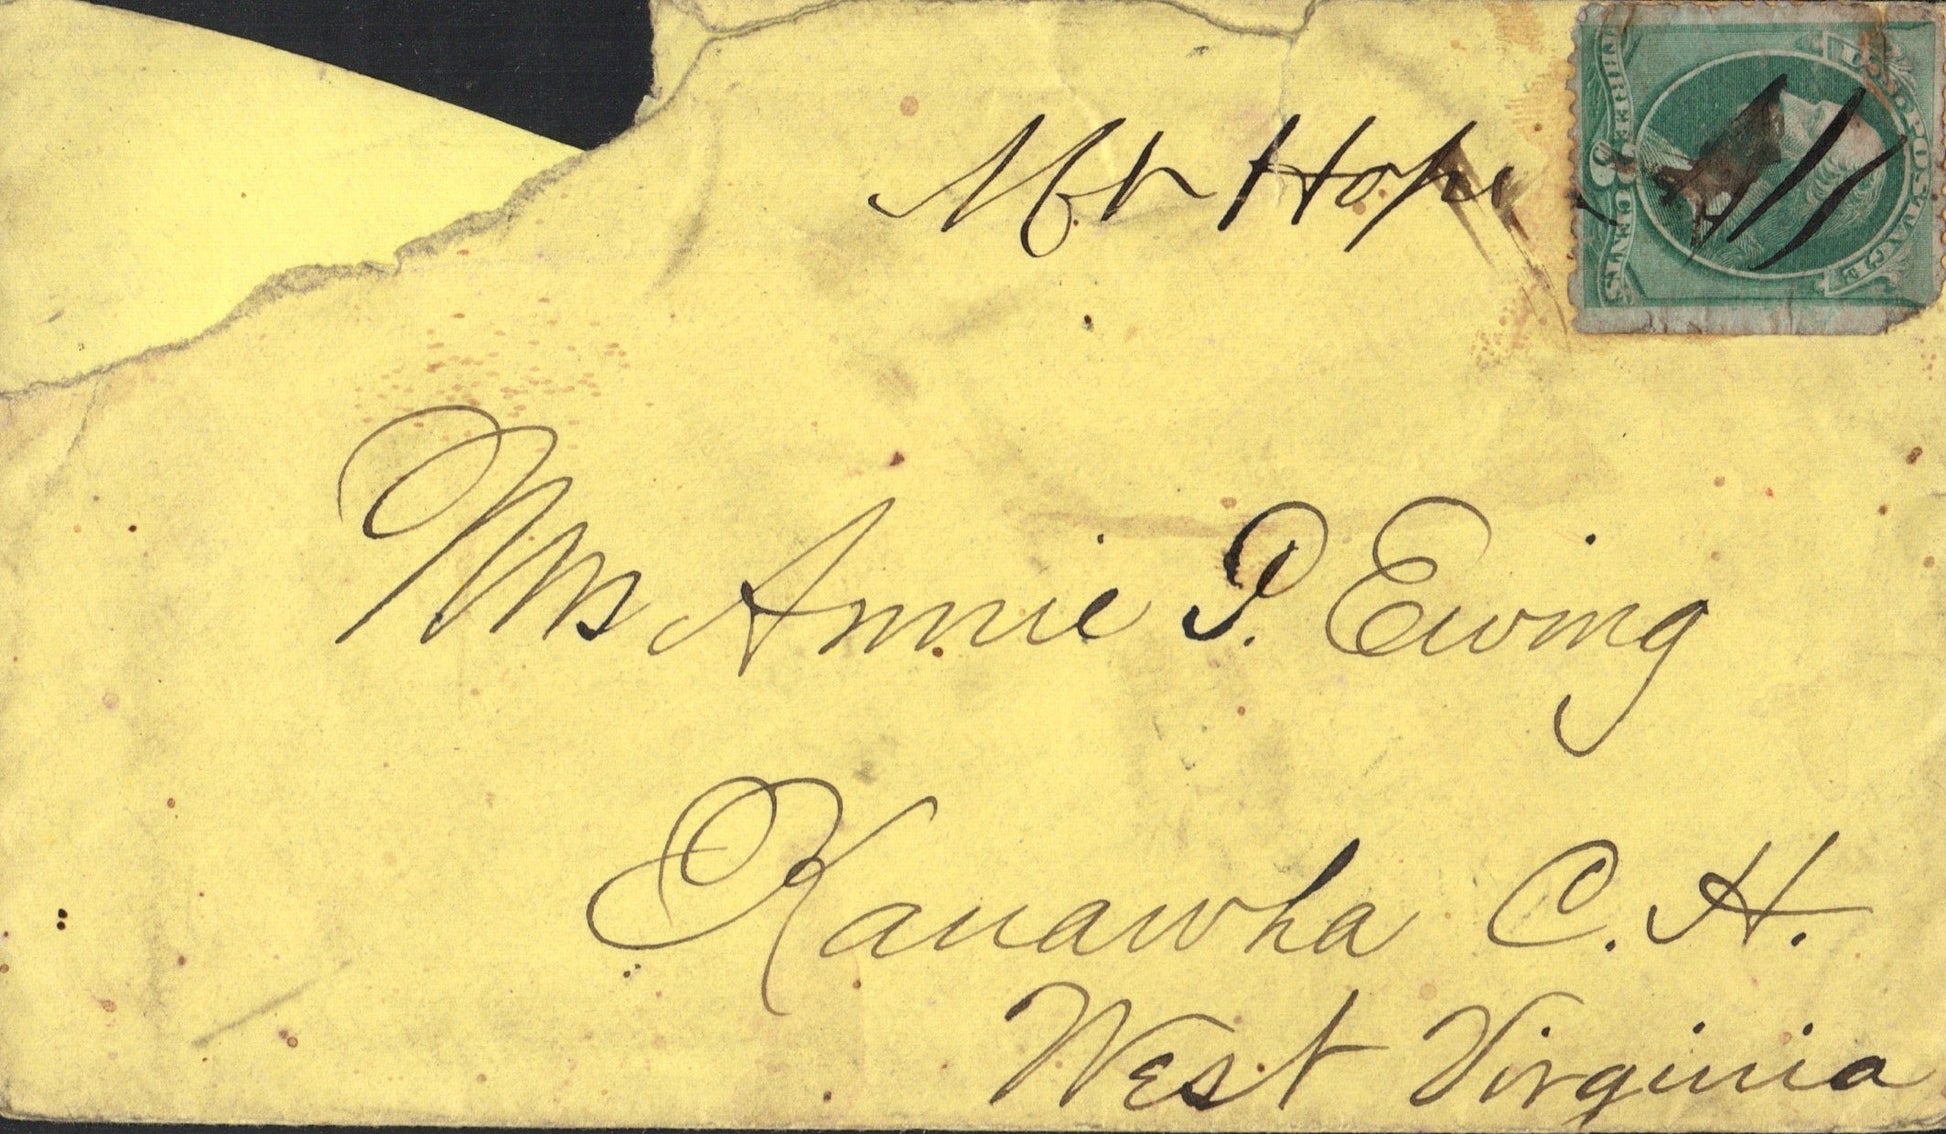 Mt Hope
U.S. POSTAGE
THREE 3 CENTS
Mrs Annie P. Ewing
Kanawha C. H.
West Virginia